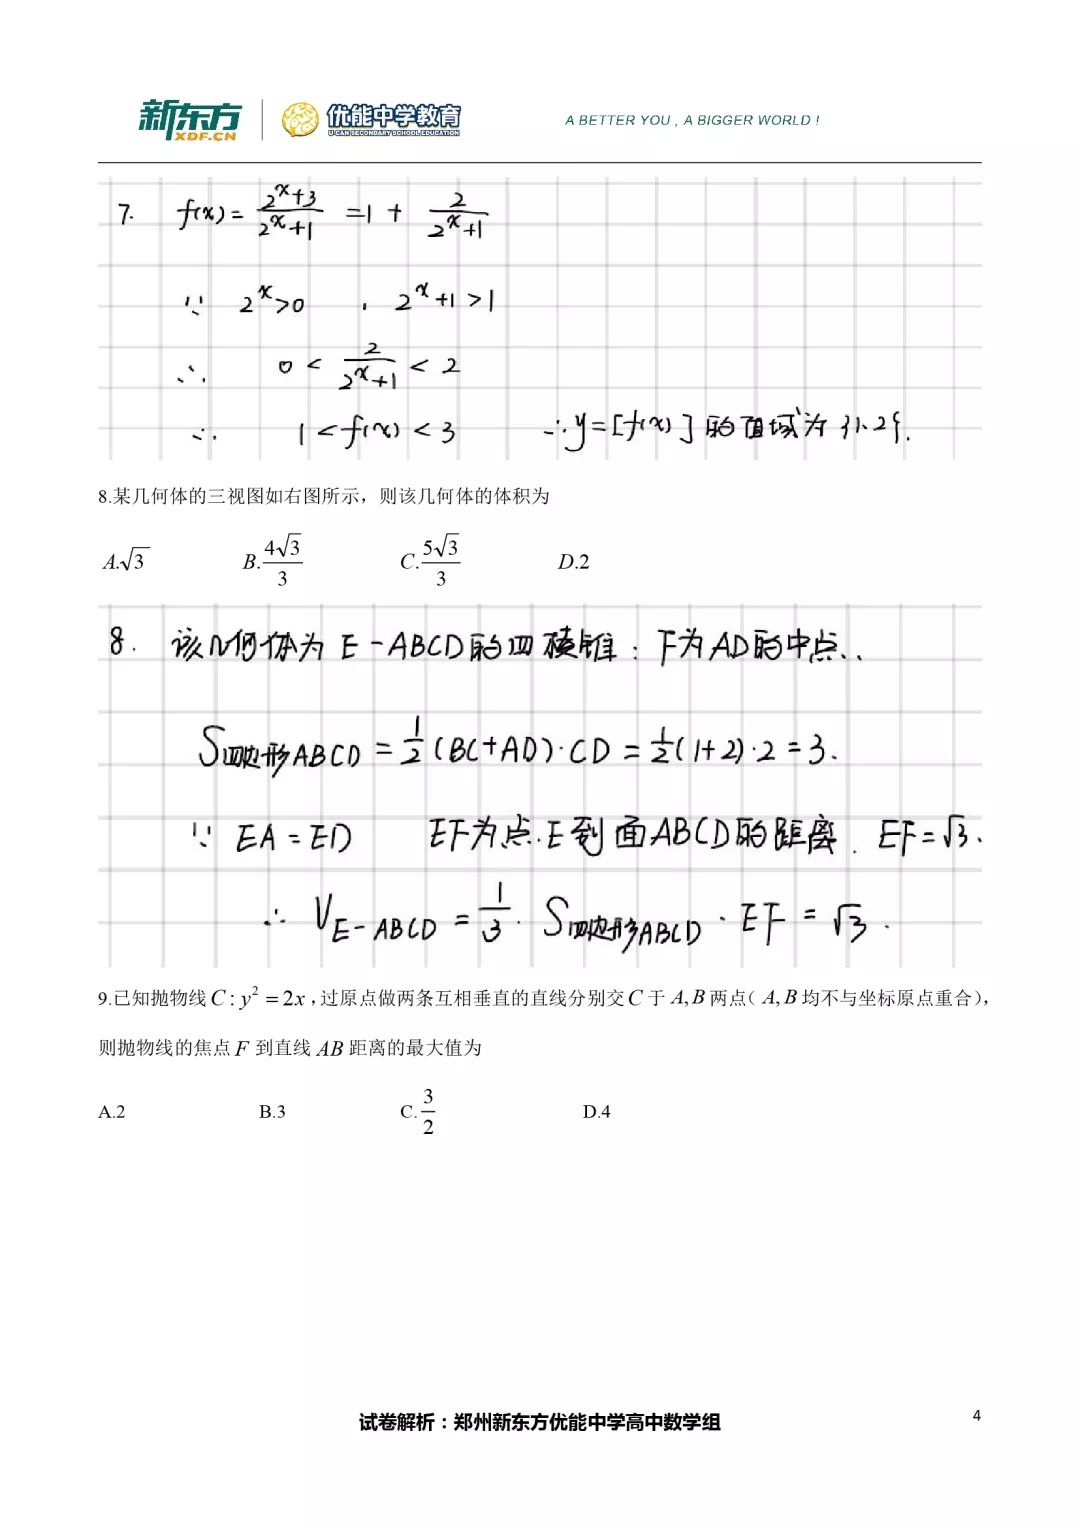 新东方 XDF.CN 优能中学教育 U-CAN SECONDARY SCHOOL EDUCATION A BETTER YOU , A BIGGER WORLD !
7. f(x) = (2^x+3)/(2^x+1) = 1 + 2/(2^x+1)
∵ 2^x>0 , 2^x+1>1
∴ 0 < 2/(2^x+1) < 2
∴ 1<f(x)<3 ∴y=[f(x)]的值域为{1.2}.
8.某几何体的三视图如右图所示，则该几何体的体积为
A.√3 B.4√3/3 C.5√3/3 D.2
8. 该几何体为E-ABCD的四棱锥：F为AD的中点..
S四边形ABCD = 1/2(BC+AD)·CD = 1/2(1+2)·2 = 3.
∵ EA=ED EF为点E到面ABCD的距离. EF=√3.
∴ V_E-ABCD = 1/3·S四边形ABCD·EF = √3.
9.已知抛物线C:y²=2x,过原点做两条互相垂直的直线分别交C于A,B两点（A,B均不与坐标原点重合），
则抛物线的焦点F到直线AB距离的最大值为
A.2 B.3 C.3/2 D.4
试卷解析：郑州新东方优能中学高中数学组 4